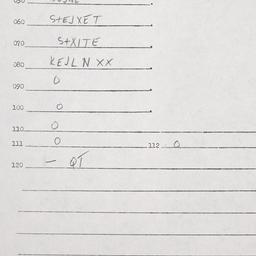 060 S+EJXET
070 S+XITE
080 KEJLN XX
090 0
100 0
110 0
111 0 112 0
120 - QT